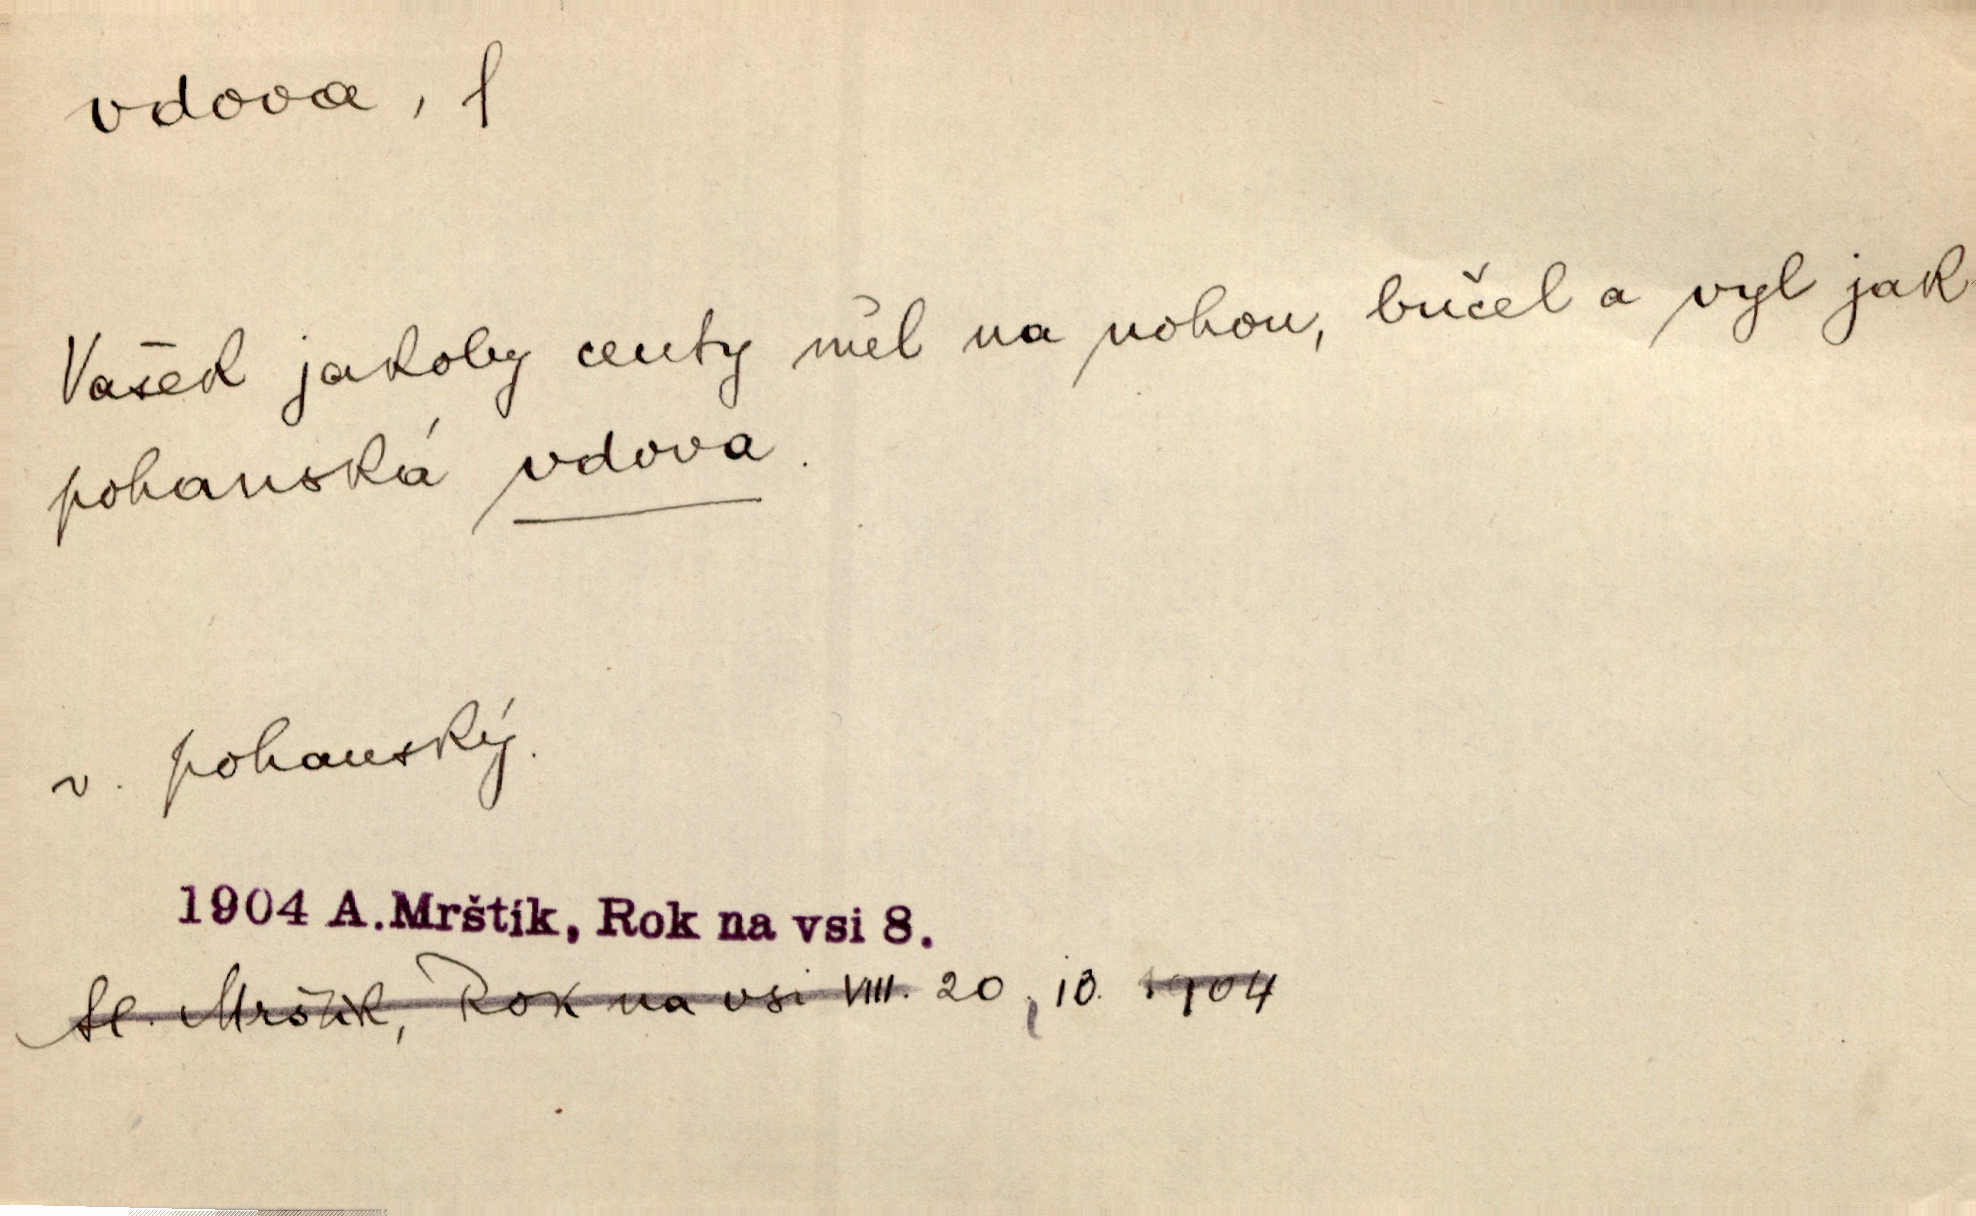 vdova, f
Vašek jakoby centy měl na nohou, bučel a vyl jak
pohanská vdova.
v. pohanský.
1904 A.Mrštík, Rok na vsi 8.
Al. Mrštík, Rok na vsi VIII. 20, 10. 1904